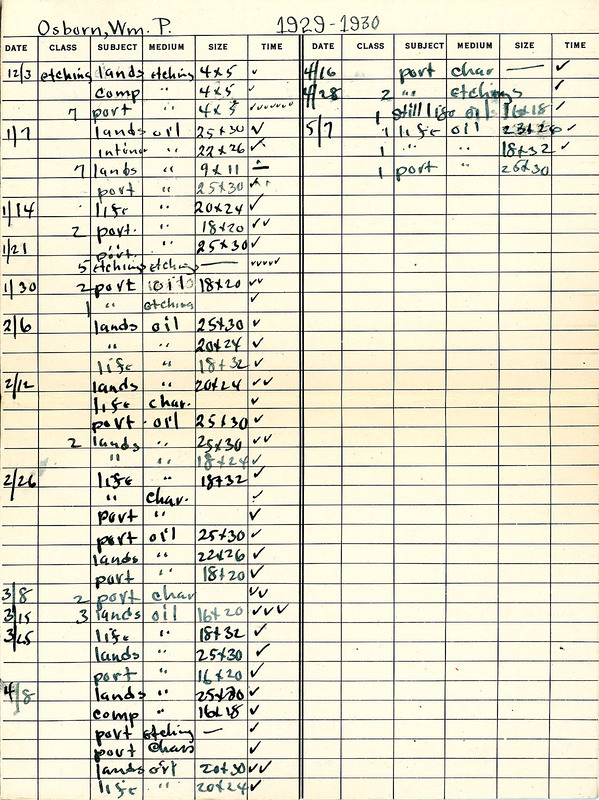 Osborn, Wm. P. 1929-1930
DATE CLASS SUBJECT MEDIUM SIZE TIME
12/3 etching lands etching 4x5 ✓
comp " 4x5 ✓
7 port " 4x5 ✓✓✓✓✓✓✓
1/7 lands oil 25x30 ✓
" 22x26 ✓
7 lands " 9x11
port " 25x30 ✓
1/14 life " 20x24 ✓
2 port. " 18x20 ✓✓
1/21 port. " 25x30 ✓
5 etching etching — ✓✓✓✓✓
1/30 2 port oil 18x20 ✓✓
1 " etching ✓
2/6 lands oil 25x30 ✓
" " 20x24 ✓
life " 18x32 ✓
2/12 lands " 20x24 ✓✓
life char. ✓
port. oil 25x30 ✓
2 lands " 25x30 ✓✓
" " 18x24 ✓
2/26 life " 18x32 ✓
" char. ✓
port " ✓
port oil 25x30 ✓
lands " 22x26 ✓
port " 18x20 ✓
3/8 2 port char ✓✓
3/15 3 lands oil 16x20 ✓✓✓
3/25 life " 18x32 ✓
lands " 25x30 ✓
port " 16x20 ✓
4/8 lands " 25x30 ✓
comp " 16x18 ✓
port etching — ✓
port char ✓
lands oil 20x30 ✓✓
life " 20x24 ✓
DATE CLASS SUBJECT MEDIUM SIZE TIME
4/16 port char — ✓
4/28 2 " etchings ✓
1 still life oil 16x18 ✓
5/7 1 life oil 23x26 ✓
1 " " 18x32 ✓
1 port " 25x30